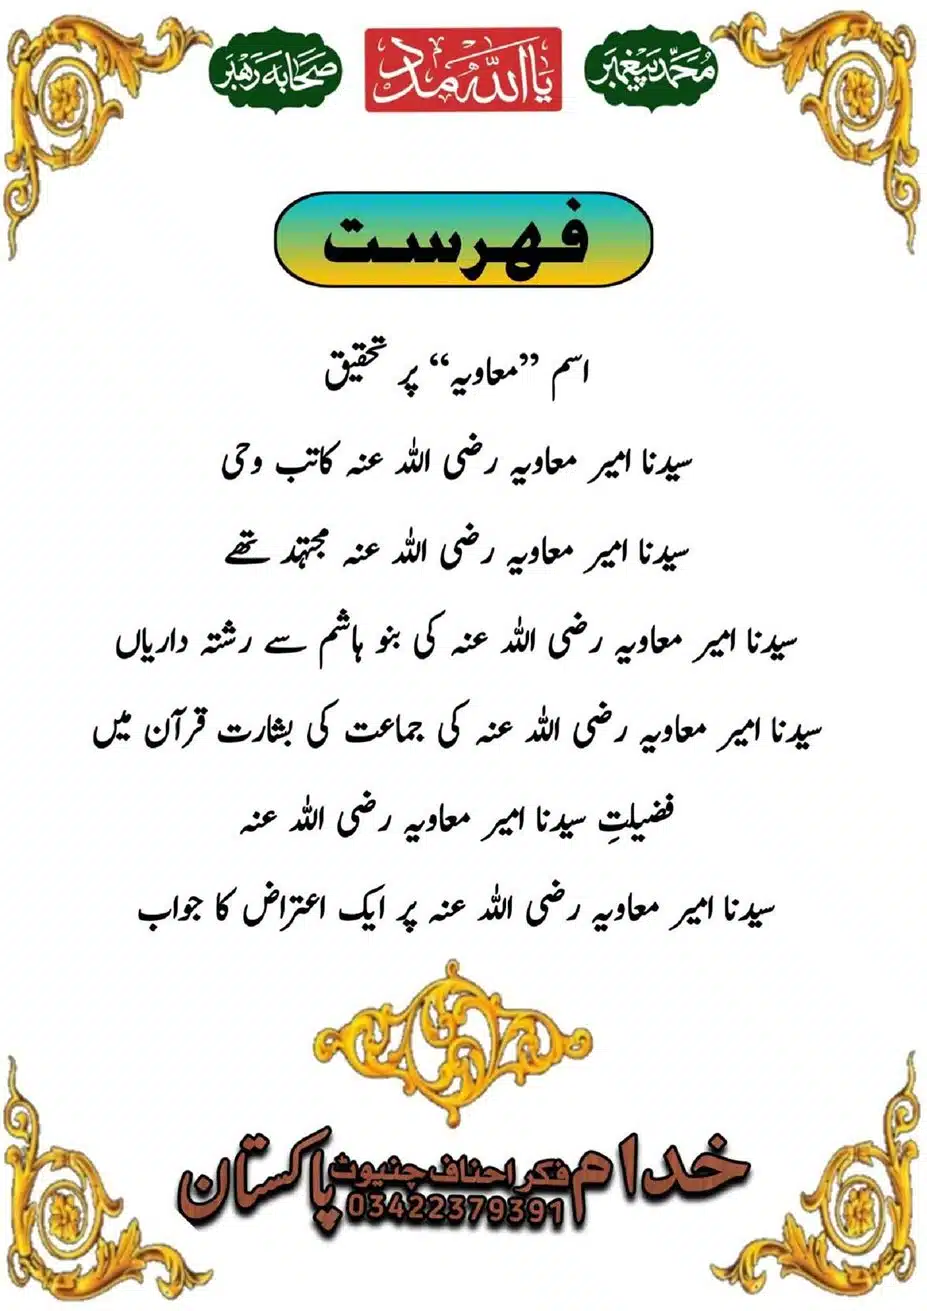 محمدؐ پیغمبر
یا اللہ مدد
صحابہ رہبر
فہرست
اسم ”معاویہ“ پر تحقیق
سیدنا امیر معاویہ رضی اللہ عنہ کاتب وحی
سیدنا امیر معاویہ رضی اللہ عنہ مجتہد تھے
سیدنا امیر معاویہ رضی اللہ عنہ کی بنو ہاشم سے رشتہ داریاں
سیدنا امیر معاویہ رضی اللہ عنہ کی جماعت کی بشارت قرآن میں
فضیلتِ سیدنا امیر معاویہ رضی اللہ عنہ
سیدنا امیر معاویہ رضی اللہ عنہ پر ایک اعتراض کا جواب
خدام فکر احناف چنیوٹ پاکستان
03422379391